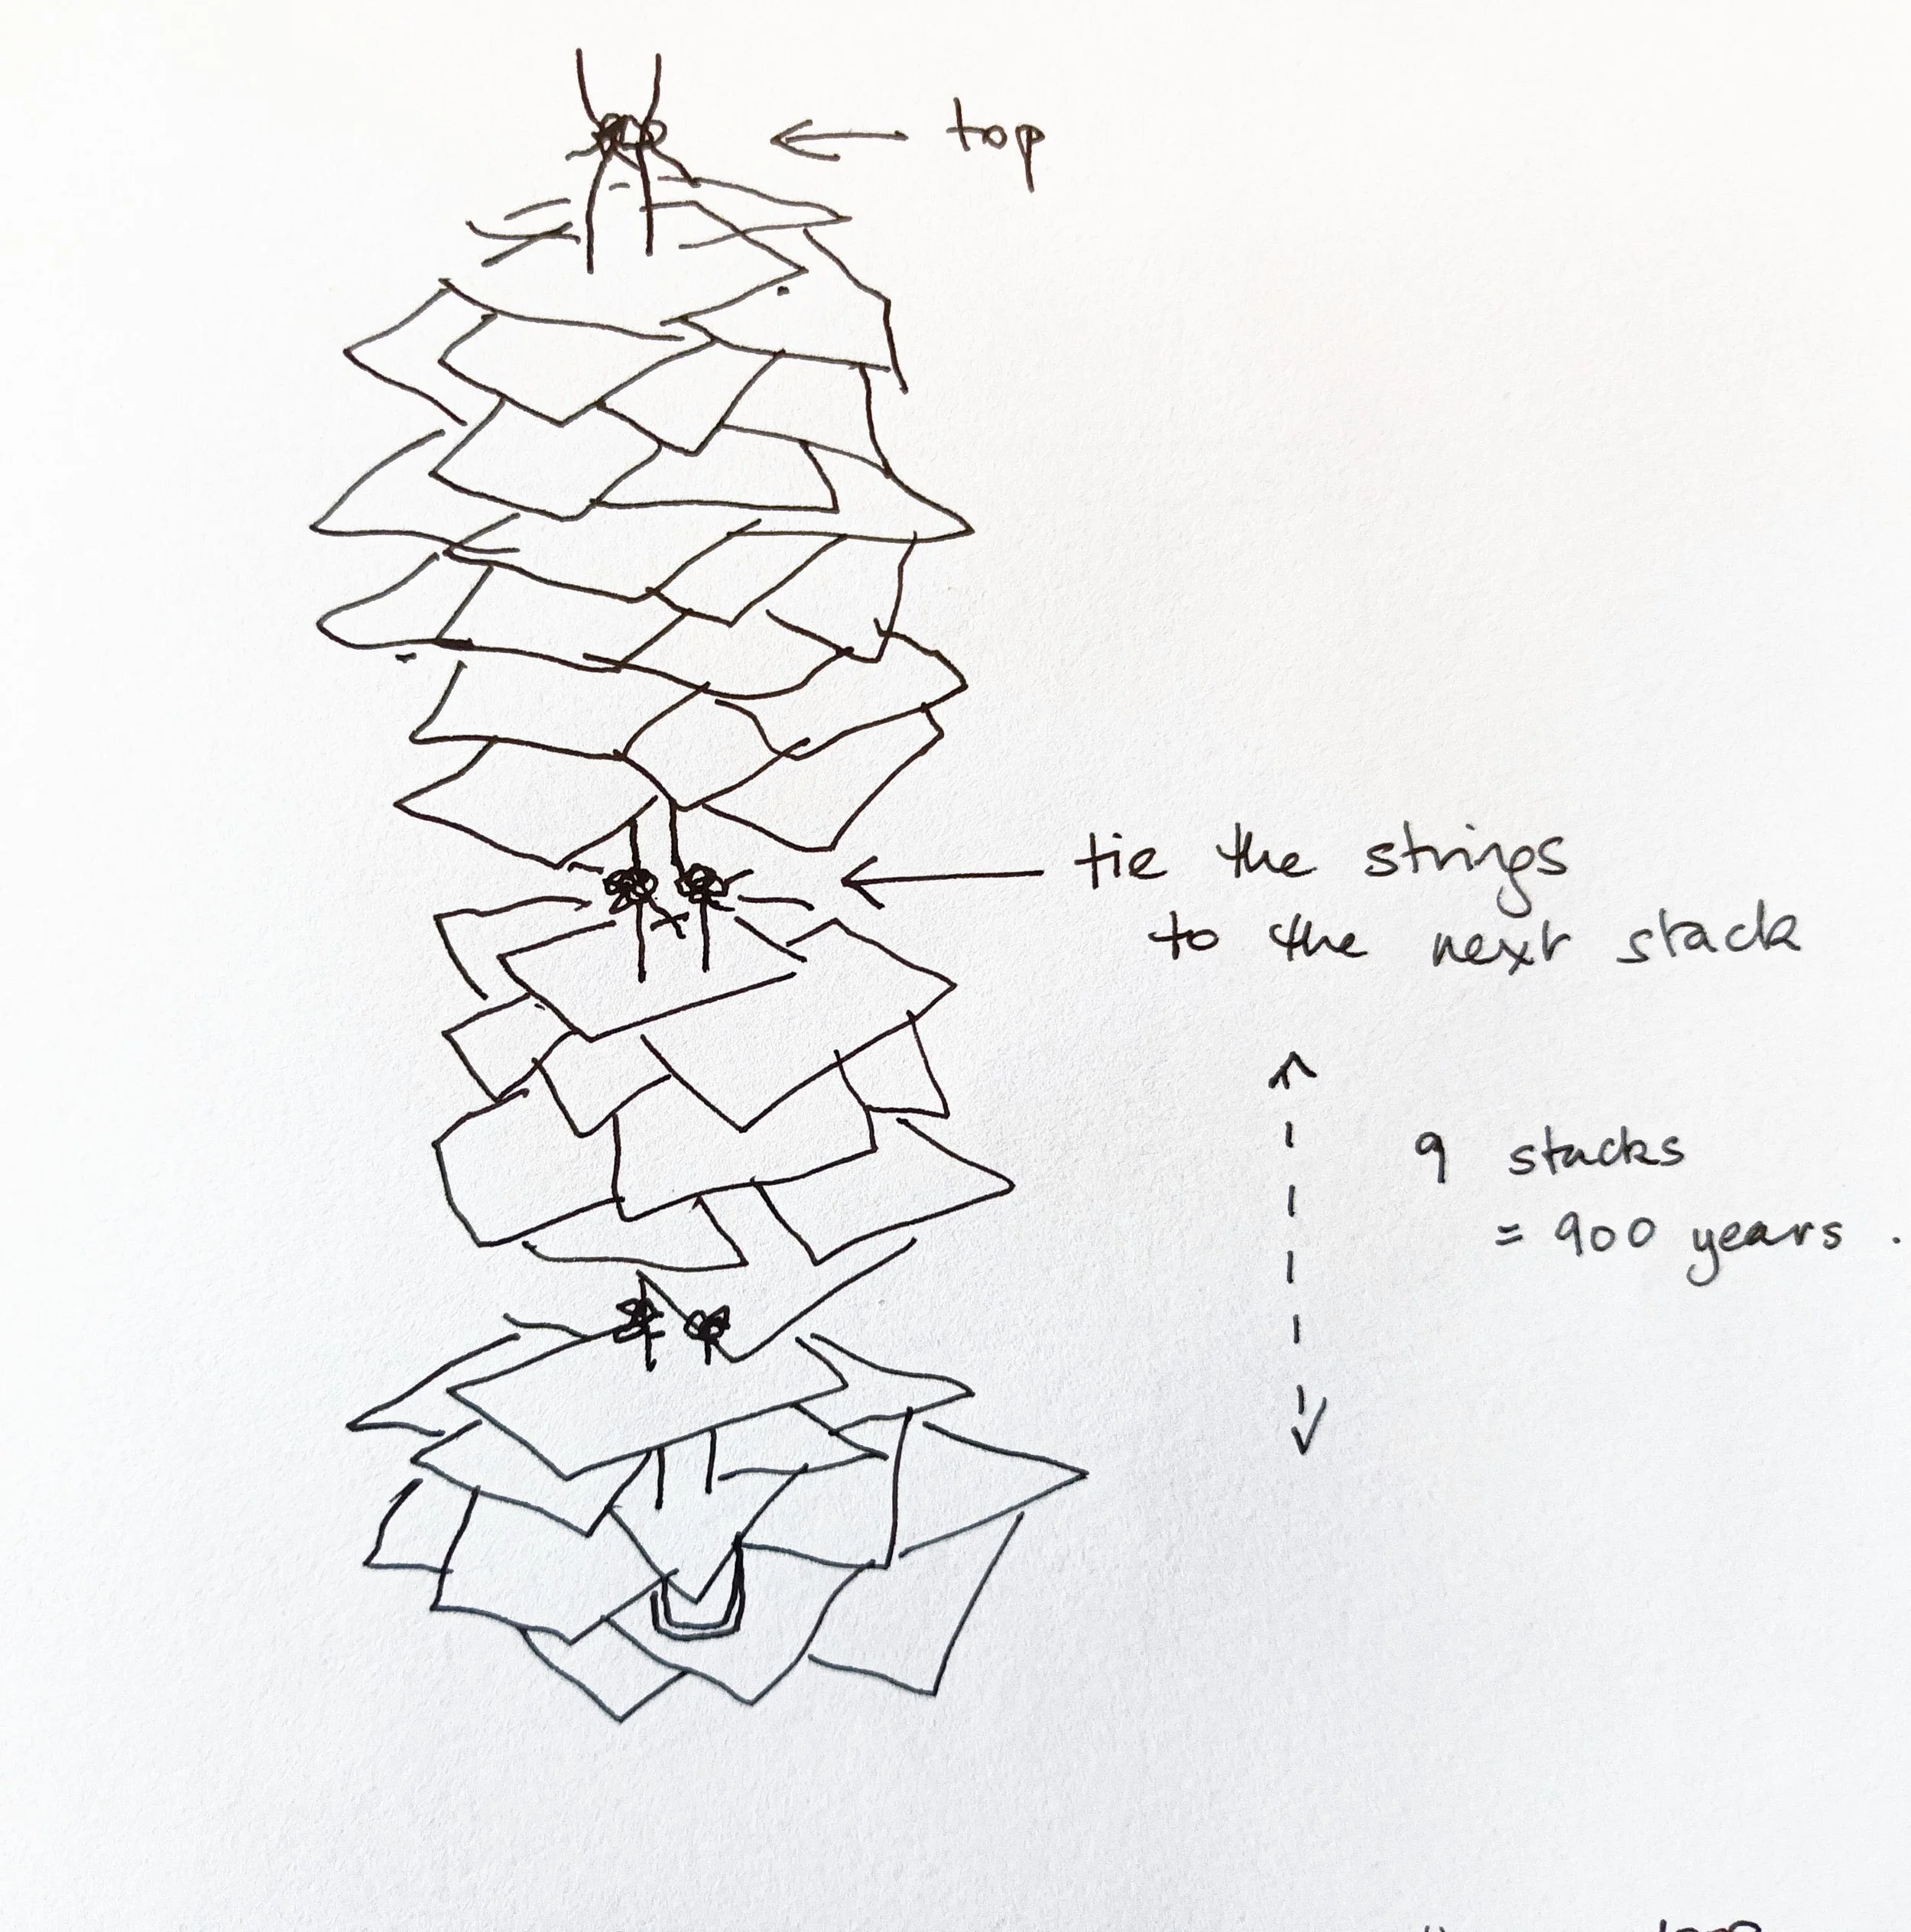 top
tie the strings
to the next stack
9 stacks
= 900 years .